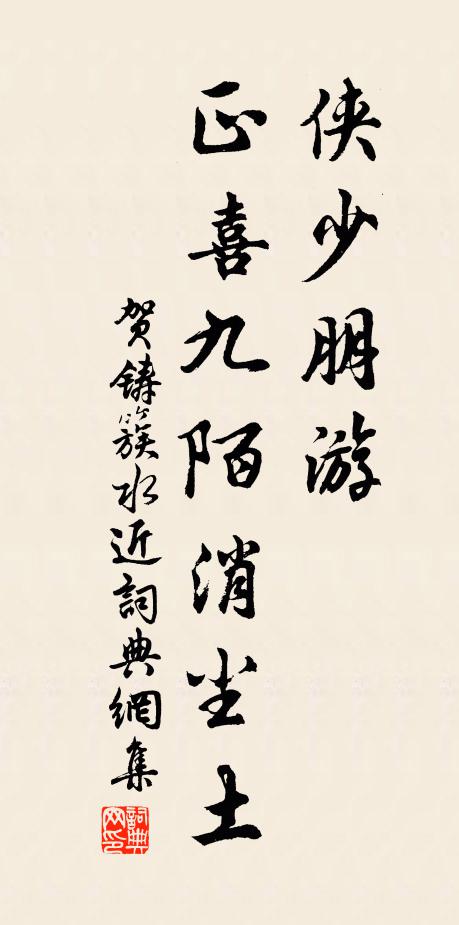 侠少朋游
正喜九陌消尘土
贺铸簇水近詞典網集
詞典网印